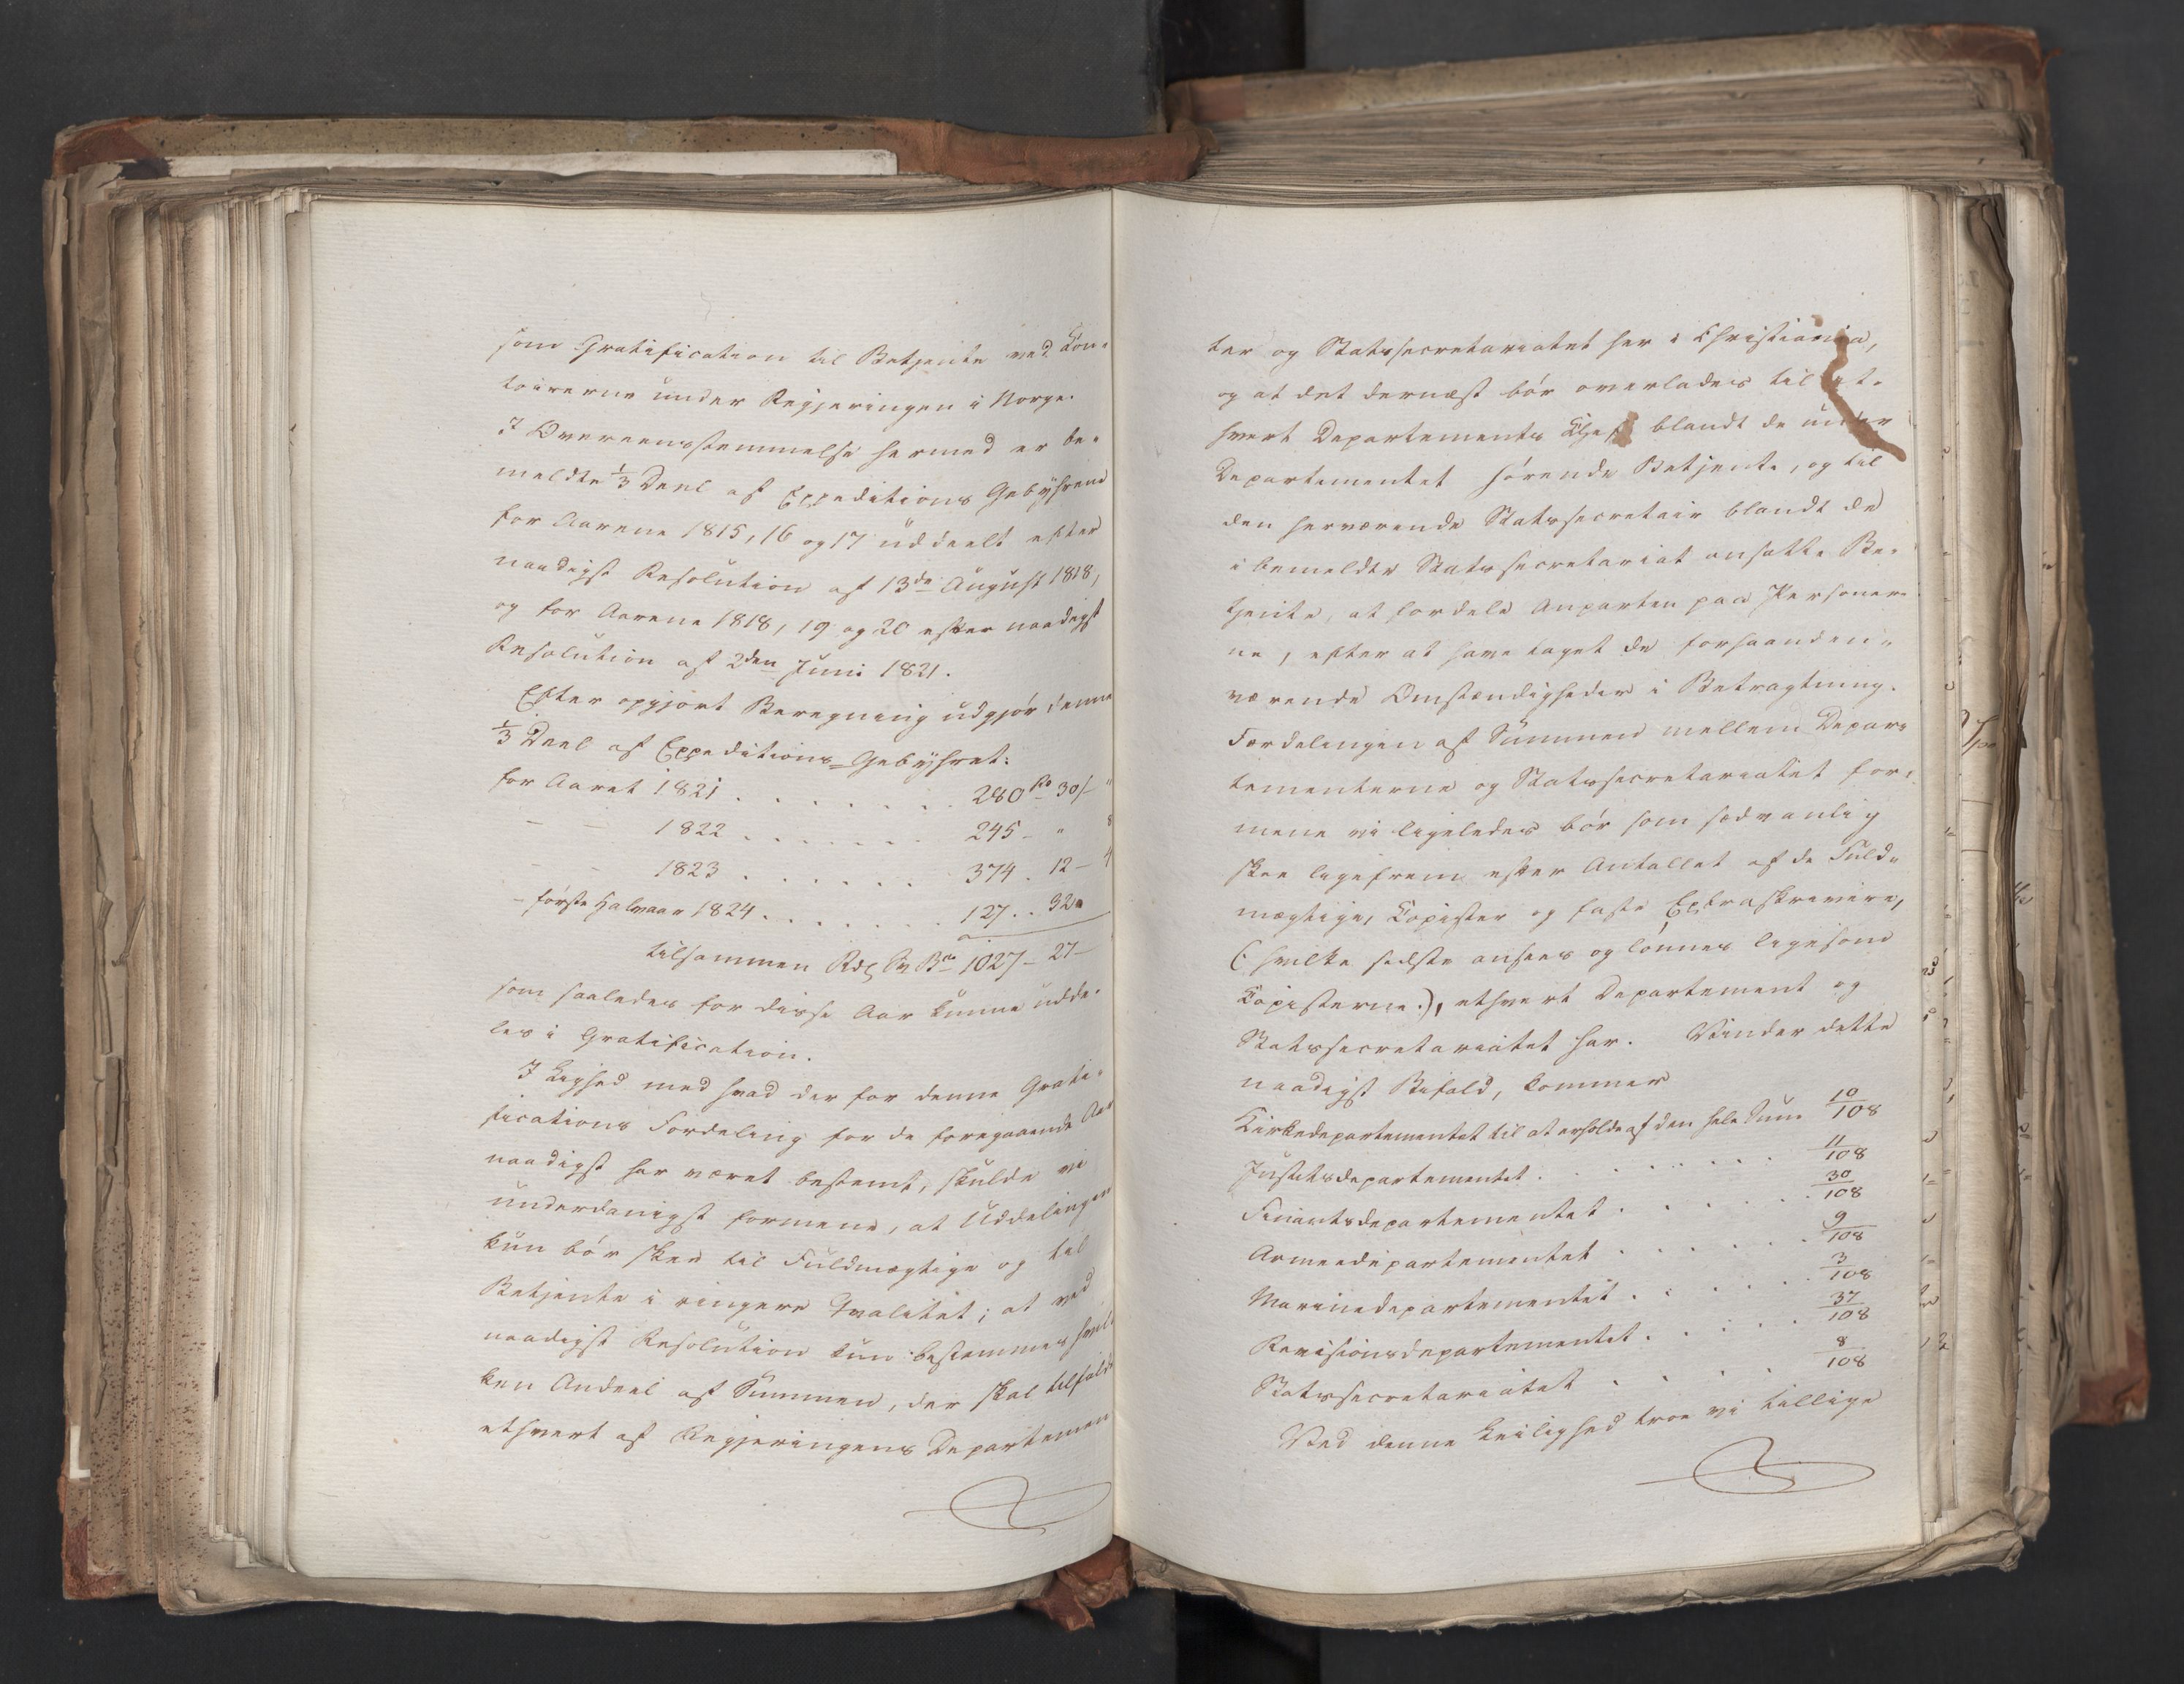 som Gratification til Betjente ved Con-
toirerne under Regjeringen i Norge.
I Overeensstemmelse hermed er be-
meldte 1/3 Deel af Expeditions Gebyhrene
for Aarene 1815, 16 og 17 uddeelt efter
naadigst Resolution af 13de August 1818,
og for Aarene 1818, 19 og 20 efter naadigst
Resolution af 2den Juni 1821.
Efter opgjort Beregning udgjør denne
1/3 Deel af Expeditions-Gebyhret:
for Aaret 1821 . . . . . . . 280 30
— — 1822 . . . . . . . 245 - " 8
— — 1823 . . . . . . . 374. 12 - 4
- første Halvaar 1824 . . . . . . . 127 . . 32
tilsammen 1027 - 27 -
som saaledes for disse Aar kunne udde-
les i Gratification.
I Lighed med hvad der for denne Grati-
fications Fordeling for de foregaaende Aar
naadigst har været bestemt, skulde vi
underdanigst formene, at Uddelingen
kun bør skee til Fuldmægtige og til
Betjente i ringere Qvalitet; at ved
naadigst Resolution kun bestemmes hvil-
ken Andeel af Summen, der skal tilfalde
ethvert af Regjeringens Departemen
ter og Statssecretariatet her i Christiania,
og at det dernæst bør overlades til et-
hvert Departements Chef blandt de under
Departementet hørende Betjente, og til
den herværende Statssecretair blandt de
i bemeldte Statssecretariat ansatte Be-
tjente, at fordele Anparten paa Personer-
ne, efter at have taget de forhaanden-
værende Omstændigheder i Betragtning.
Fordelingen af Summen mellem Depar-
tementerne og Statssecretariatet for-
mene vi ligeledes bør som sædvanlig
skee ligefrem efter Antallet af de Fuld-
mægtige, Copister og faste Extraskrivere,
(: hvilke sidste ansees og lønnes ligesom
Copisterne :), ethvert Departement og
Statssecretariatet har. Vinder dette
naadigst Bifald, kommer
Kirkedepartementet til at erholde af den hele Sum 10/108
Justitsdepartementet . . . . . . . 11/108
Finantsdepartementet . . . . . . 30/108
Armeedepartementet . . . . . . 9/108
Marinedepartementet . . . . . 3/108
Revisionsdepartementet . . . . . 37/108
Statssecretariatet . . . . 8/108
Ved denne Leilighed troe vi tillige